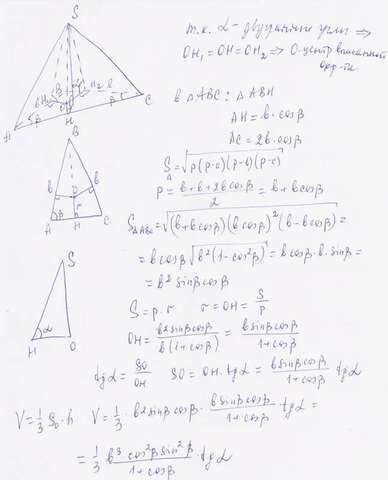 S
H₁
B
H₂
b
O
A
β
H
β
C
т.к. α - двугранные углы ⇒
OH₁=OH=OH₂ ⇒ O-центр вписанной
окр-ти
в △ABC: △ABH
AH = b·cosβ
AC = 2b·cosβ
S△ = √(p(p-a)(p-b)(p-c))
P = (b+b+2bcosβ)/2 = b+bcosβ
B
b
b
O
r
A
β
H
C
S△ABC = √((b+bcosβ)(bcosβ)²(b-bcosβ)) =
= bcosβ √(b²(1-cos²β)) = bcosβ·b·sinβ =
= b² sinβcosβ
S
α
H
O
S = p·r r = OH = S/P
OH = b²sinβcosβ / b(1+cosβ) = bsinβcosβ / 1+cosβ
tgα = SO/OH SO = OH·tgα = bsinβcosβ / 1+cosβ tgα
V = 1/3 S₀·h V = 1/3 · b² sinβcosβ · bsinβcosβ / 1+cosβ tgα =
= 1/3 b³ cos²β sin²β / 1+cosβ · tgα